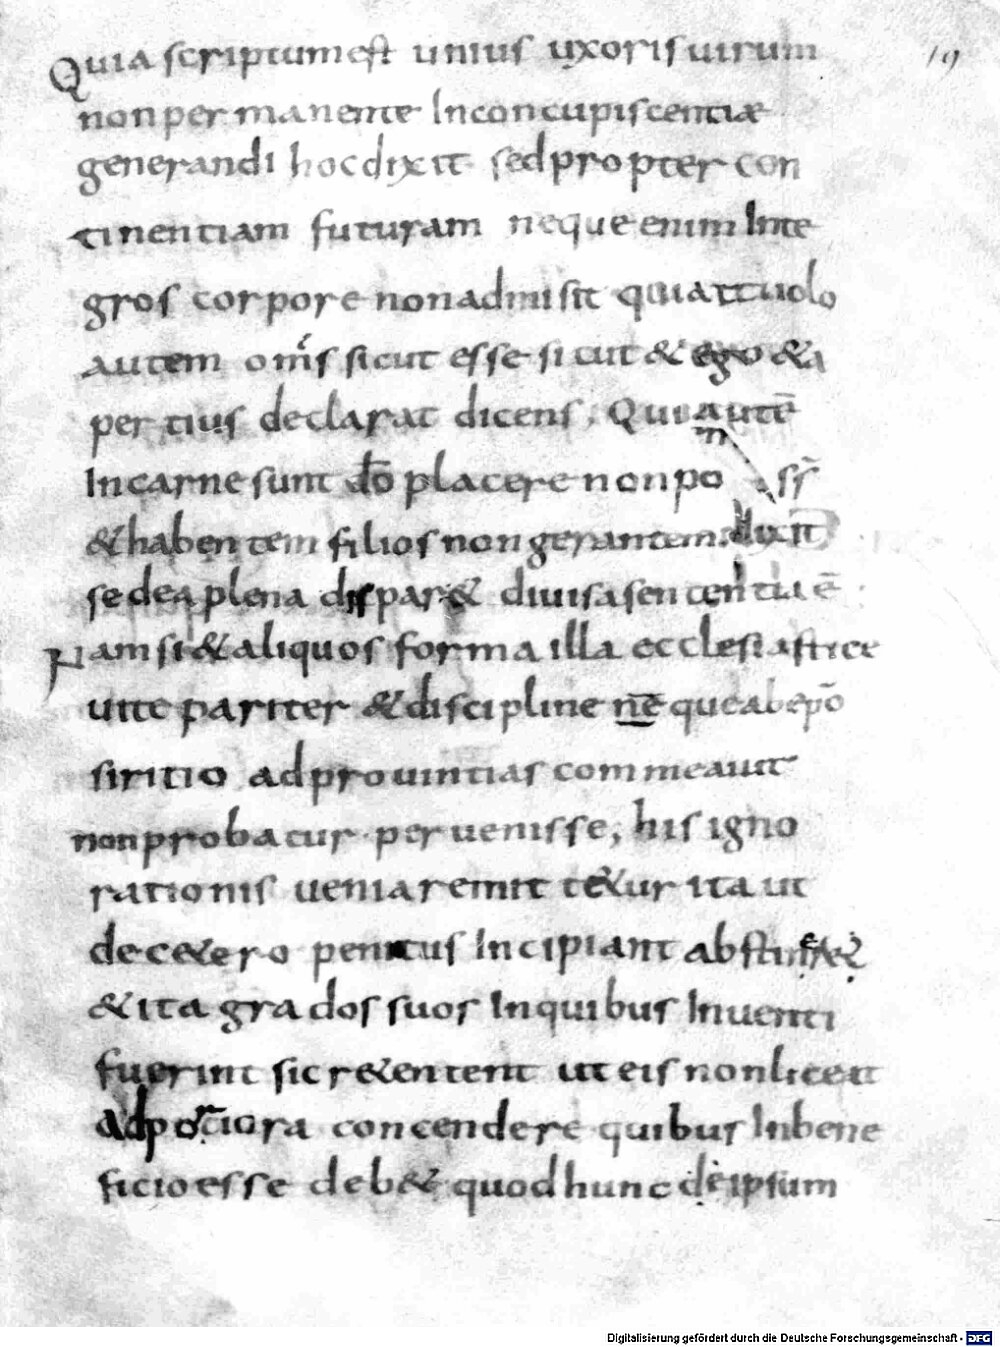 19
Quia scriptum est unius uxoris uirum
non permanente In concupiscentiae
generandi hoc dixit sed propter con
tinentiam futuram neque enim Inte
gros corpore non admisit qui ait uolo
autem om̅s sicut esse sicut & ego & a
pertius declarat dicens, Qui autē
In carne sunt do̅ placere non pos̅s̅
& habentem filios non gerantem dixit
se dea plena dispar& diuisa sententia ē
Nam si & aliquos forma illa ecclesiastice
uite pariter & discipline n̅e que ab ep̅o
siritio ad prouintias commeauit
non probatur peruenisse, his igno
rationis uenia remittetur ita ut
de c&ero penitus Incipiant
& ita grados suos In quibus Inuenti
fuerint sic r&entent ut eis non liceat
ad potiora concendere quibus In bene
ficio esse deb& quod hunc de ipsum
Digitalisierung gefördert durch die Deutsche Forschungsgemeinschaft - DFG